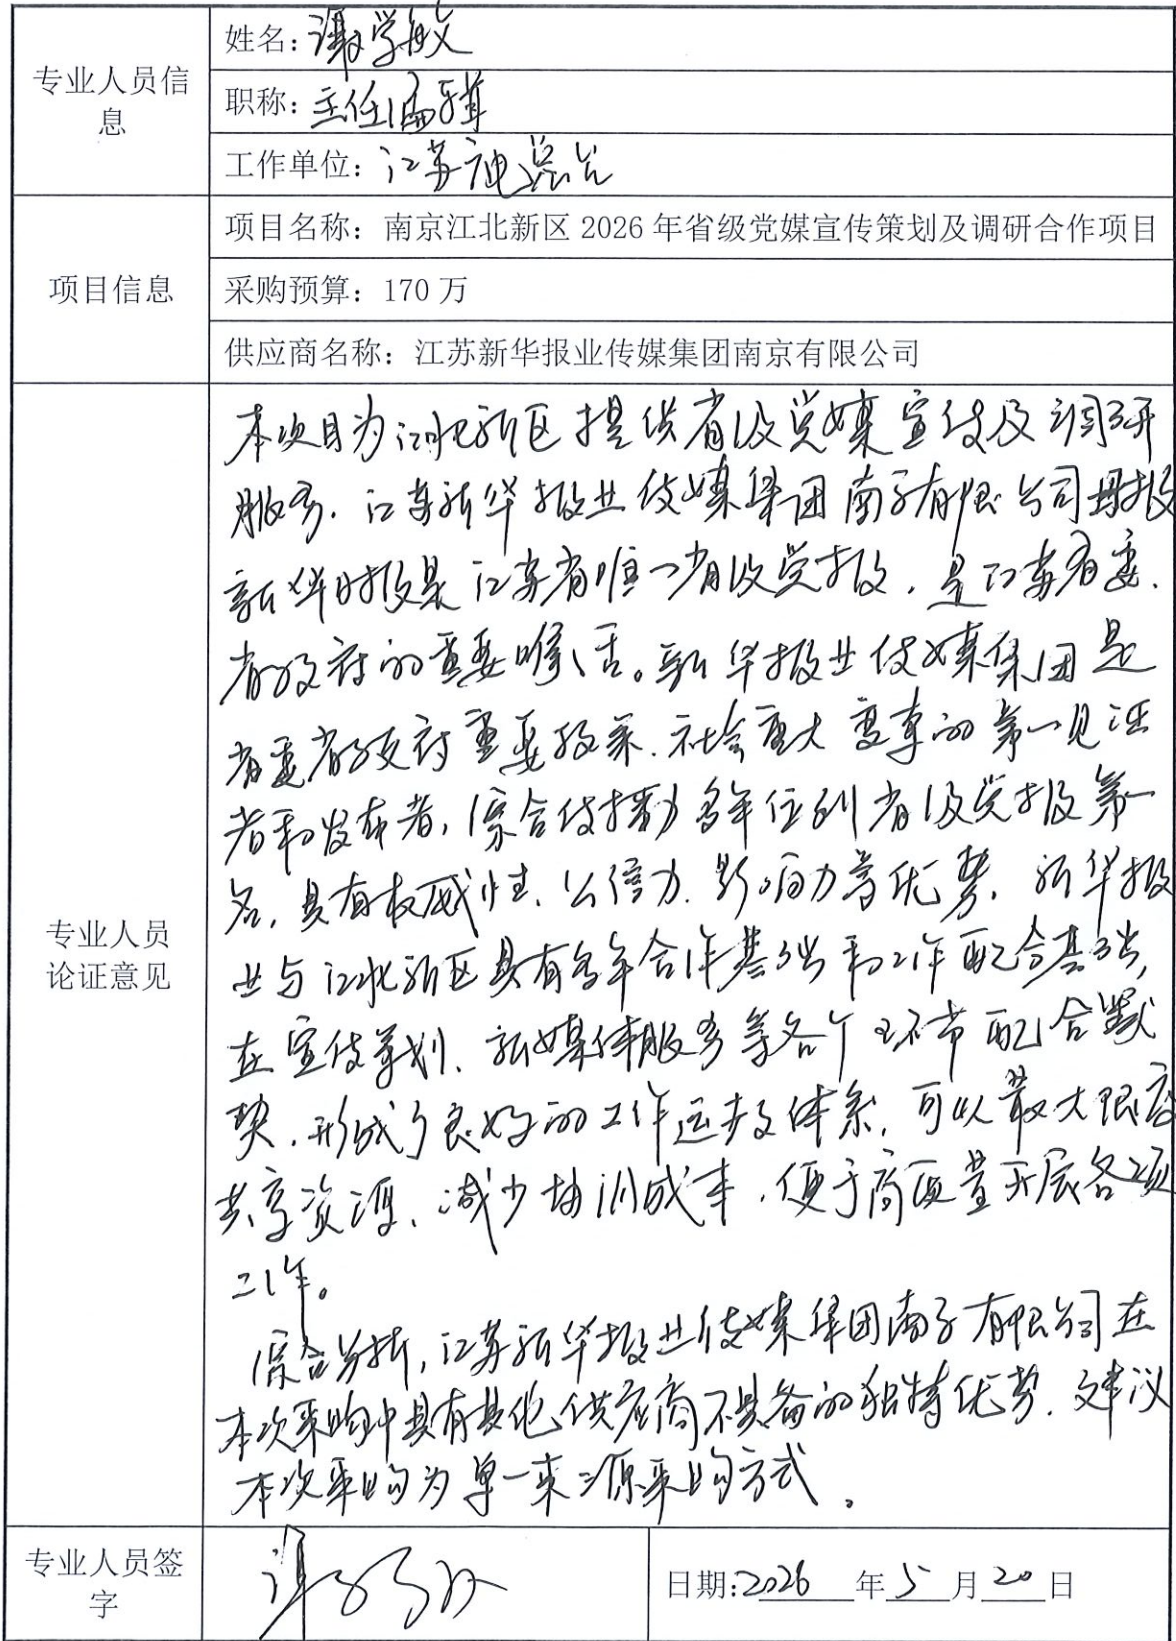 专业人员信息
姓名：谭学敏
职称：主任编辑
工作单位：江苏广电总台
项目信息
项目名称：南京江北新区 2026 年省级党媒宣传策划及调研合作项目
采购预算：170 万
供应商名称：江苏新华报业传媒集团南京有限公司
专业人员
论证意见
本项目为江北新区提供省级党媒宣传及调研
服务。江苏新华报业传媒集团南京有限公司母报
新华日报是江苏省唯一省级党报，是江苏省委、
省政府的重要喉舌。新华报业传媒集团是
省委省政府重要政策、社会重大变革的第一见证
者和发布者，综合传播力多年位列省级党报第一
名，具有权威性、公信力、影响力等优势。新华报
业与江北新区具有多年合作基础和工作配合基础，
在宣传策划、新媒体服务等各个环节配合默
契，形成了良好的工作运转体系，可以最大限度
共享资源、减少协调成本，便于高质量开展各项
工作。
综合分析，江苏新华报业传媒集团南京有限公司在
本次采购中具有其他供应商不具备的独特优势，建议
本次采购为单一来源采购方式。
专业人员签字
日期：2026 年 5 月 20 日